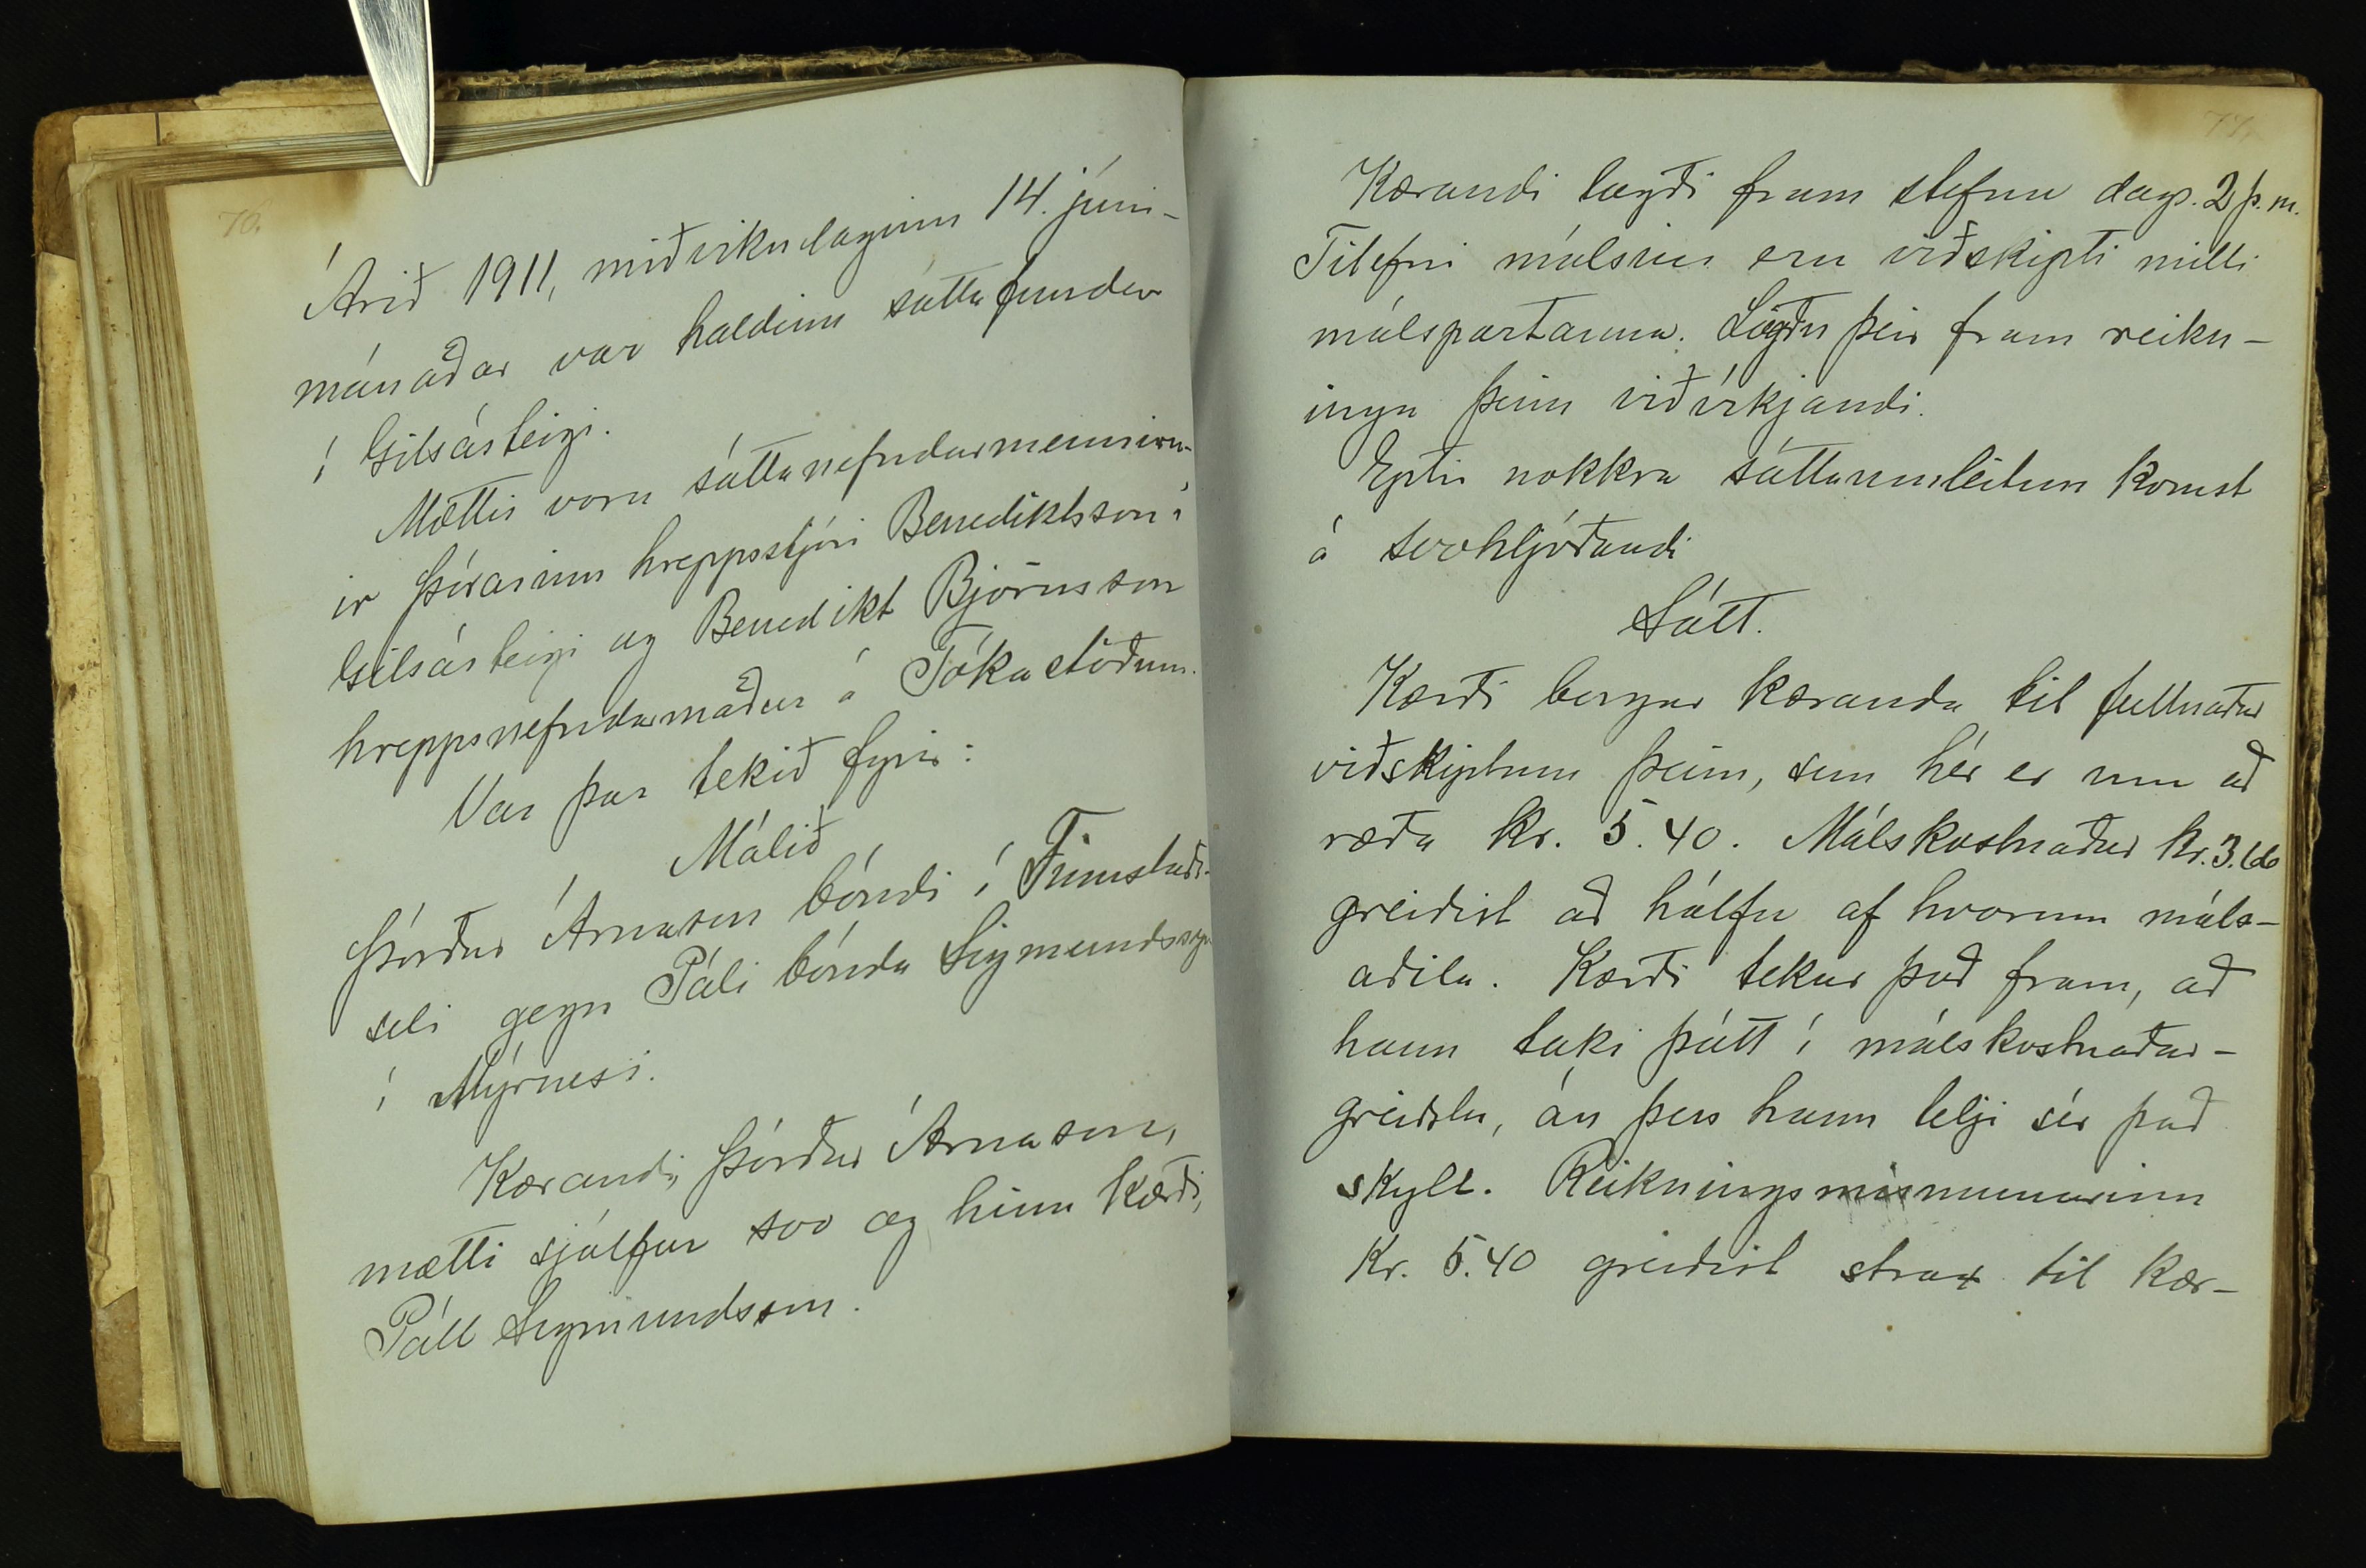 76.
Árið 1911, miðvikudaginn 14. júni-
mánaðar var haldinn sáttafundur
í Gilsárteigi.
Mættir voru sáttanefndarmennirn-
ir Þórarinn hreppsstjóri Benediktsson í
Gilsárteigi og Benedikt Björnsson
hreppsnefndarmaður á Tókastöðum.
Var þar tekið fyrir:
Málið
Þórður Árnason bóndi í Finnstaða-
seli gegn Páli bónda Sigmundssyni
í Mýrnesi.
Kærandi, Þórður Árnason,
mætti sjálfur svo og hinn kærði,
Páll Sigmundsson.
77.
Kærandi lagði fram stefnu dags. 2 þ. m.
Tilefni málsins eru viðskipti milli
málspartanna. Lögðu þeir fram reikn-
inga þeim viðvíkjandi.
Eptir nokkra sáttaumleitun komst
á svohljóðandi
Sátt.
Kærði borgar kæranda til fullnaðar
viðskiptum þeim, sem hér er um að
ræða kr. 5.40. Málskostnaður kr. 3.60
greiðist að hálfu af hvorum máls-
aðila. Kærði tekur það fram, að
hann taki þátt í málskostnaðar-
greiðslu, án þess hann telji sér það
skylt. Reikningsmismunurinn
Kr. 5.40 greiðist strax til kær-